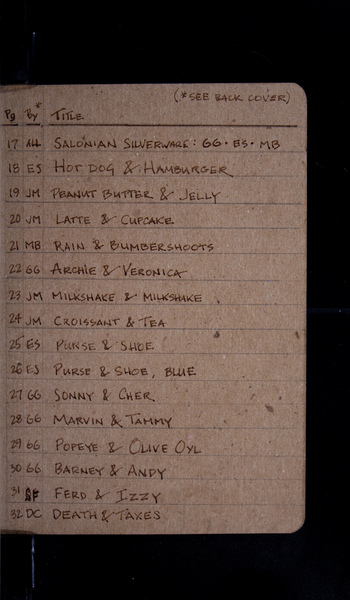 (*SEE BACK COVER)
Pg By* TITLE
17 ALL SALONIAN SILVERWARE: GG • ES • MB
18 ES HOT DOG & HAMBURGER
19 JM PEANUT BUTTER & JELLY
20 JM LATTE & CUPCAKE
21 MB RAIN & BUMBERSHOOTS
22 GG ARCHIE & VERONICA
23 JM MILKSHAKE & MILKSHAKE
24 JM CROISSANT & TEA
25 ES PURSE & SHOE
26 ES PURSE & SHOE, BLUE
27 GG SONNY & CHER
28 GG MARVIN & TAMMY
29 GG POPEYE & OLIVE OYL
30 GG BARNEY & ANDY
31 FERD & IZZY
32 DC DEATH & TAXES